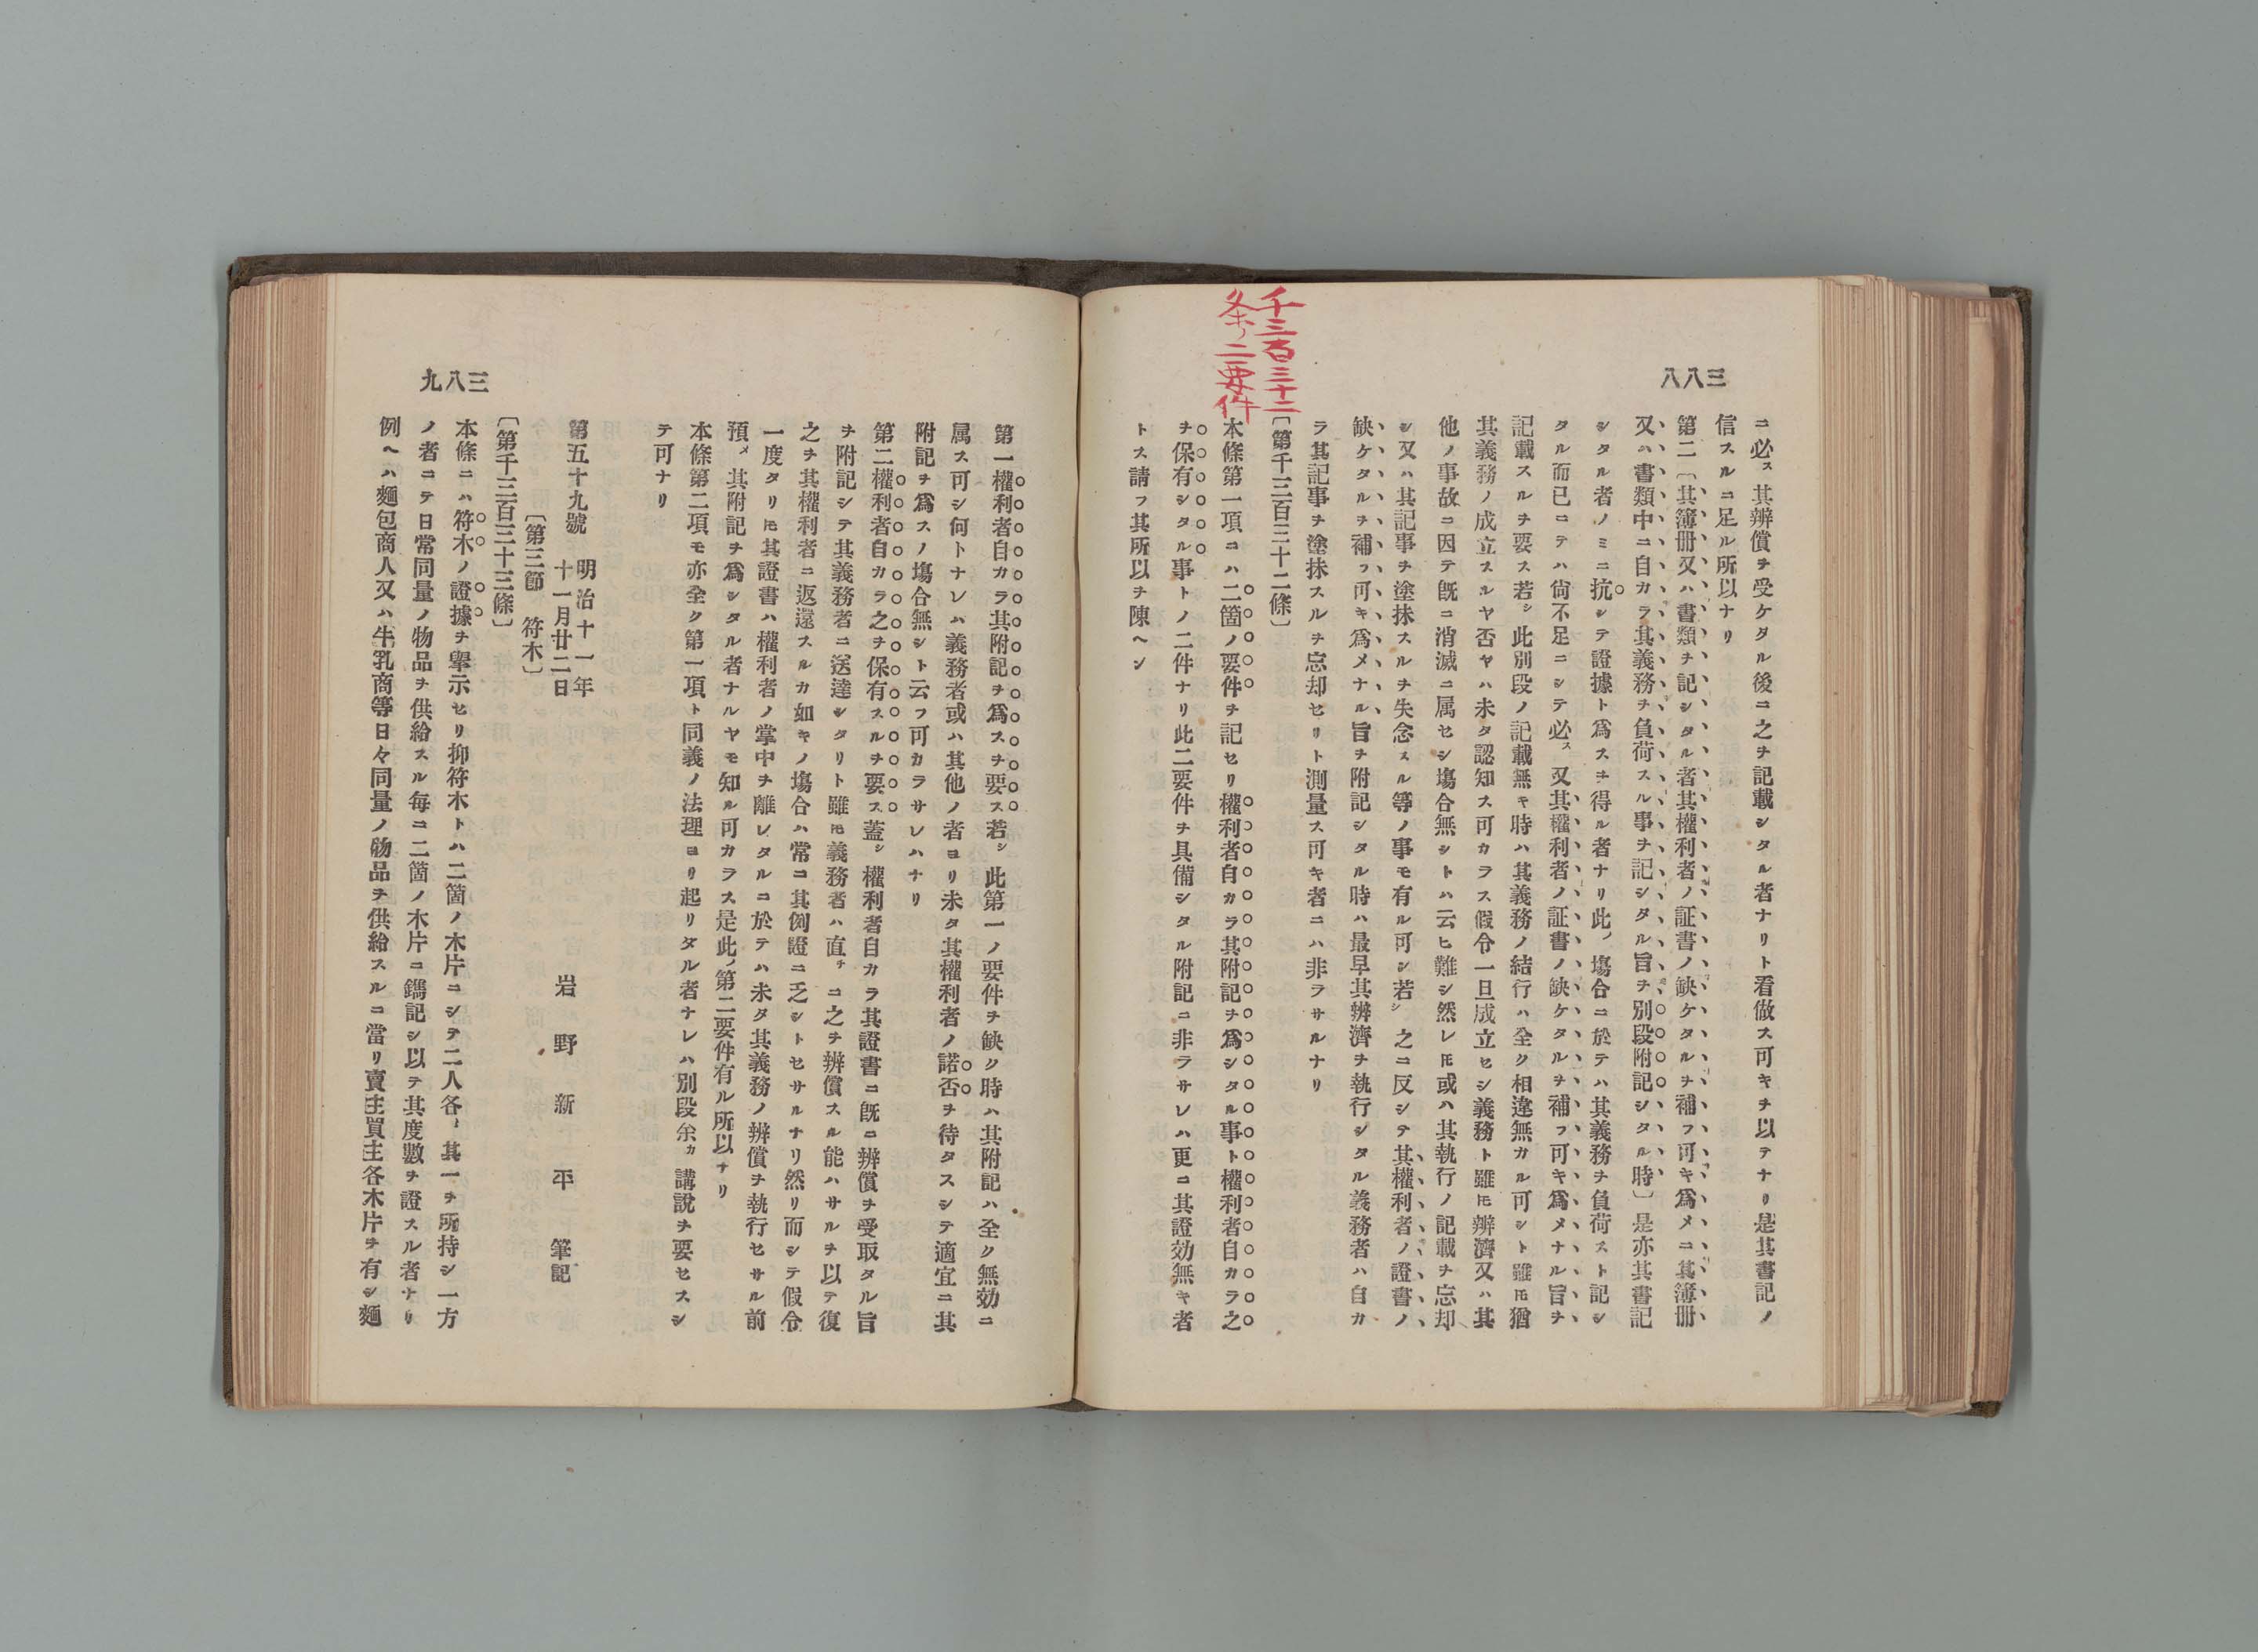 三八八
ニ必ス其辨償チ受ケタル後ニ之チ記載シタル者ナリト看做ス可キチ以テナリ是其書記ノ
信スルニ足ル所以ナリ
第二〔其簿冊又ハ書類チ記シタル者其權利者ノ証書ノ缺ケタルチ補フ可キ爲メニ其簿冊
又ハ書類中ニ自カラ其義務チ負荷スル事チ記シタル旨チ別段附記シタル時〕是亦其書記
シタル者ノミニ抗シテ證據ト爲スチ得ル者ナリ此ノ塲合ニ於テハ其義務チ負荷スト記シ
タル而已ニテハ尙不足ニシテ必ス又其權利者ノ証書ノ缺ケタルチ補フ可キ爲メナル旨チ
記載スルチ要ス若シ此別段ノ記載無キ時ハ其義務ノ結行ハ全ク相違無カル可シト雖𪜈猶
其義務ノ成立スルヤ否ヤハ未タ認知ス可カラス假令一旦成立セシ義務ト雖𪜈辨濟又ハ其
他ノ事故ニ因テ既ニ消滅ニ属セシ塲合無シトハ云ヒ難シ然レ𪜈或ハ其執行ノ記載チ忘却
シ又ハ其記事チ塗抹スルチ失念スル等ノ事モ有ル可シ若シ之ニ反シテ其權利者ノ證書ノ
缺ケタルチ補フ可キ爲メナル旨チ附記シタル時ハ最早其辨濟チ執行シタル義務者ハ自カ
ラ其記事チ塗抹スルチ忘却セリト測量ス可キ者ニハ非ラサルナリ
千三百三十二
条ノ二要件
〔第千三百三十二條〕
本條第一項ニハ二箇ノ要件チ記セリ權利者自カラ其附記チ爲シタル事ト權利者自カラ之
チ保有シタル事トノ二件ナリ此二要件チ具備シタル附記ニ非ラサレハ更ニ其證効無キ者
トス請フ其所以チ陳ヘン
三八九
第一權利者自カラ其附記チ爲スチ要ス若シ此第一ノ要件チ缺ク時ハ其附記ハ全ク無効ニ
属ス可シ何トナレハ義務者或ハ其他ノ者ヨリ未タ其權利者ノ諾否チ待タスシテ適宜ニ其
附記チ爲スノ塲合無シト云フ可カラサレハナリ
第二權利者自カラ之チ保有スルチ要ス蓋シ權利者自カラ其證書ニ既ニ辨償チ受取タル旨
チ附記シテ其義務者ニ送達シタリト雖𪜈義務者ハ直チニ之チ辨償スル能ハサルチ以テ復
之チ其權利者ニ返還スルカ如キノ塲合ハ常ニ其例證ニ乏シトセサルナリ然リ而シテ假令
一度タリ𪜈其證書ハ權利者ノ掌中チ離レタルニ於テハ未タ其義務ノ辨償チ執行セサル前
預メ其附記チ爲シタル者ナルヤモ知ル可カラス是此ノ第二要件有ル所以ナリ
本條第二項モ亦全ク第一項ト同義ノ法理ヨリ起リタル者ナレハ別段余カ講說チ要セスシ
テ可ナリ
第五十九號 明治十一年
十一月廿二日
岩野新平 筆記
〔第三節 符木〕
〔第千三百三十三條〕
本條ニハ符木ノ證據チ擧示セリ抑符木トハ二箇ノ木片ニシテ二人各〻其一チ所持シ一方
ノ者ニテ日常同量ノ物品チ供給スル毎ニ二箇ノ木片ニ鐫記シ以テ其度數チ證スル者ナリ
例ヘハ麵包商人又ハ牛乳商等日々同量ノ物品チ供給スルニ當リ賣主買主各木片チ有シ麵